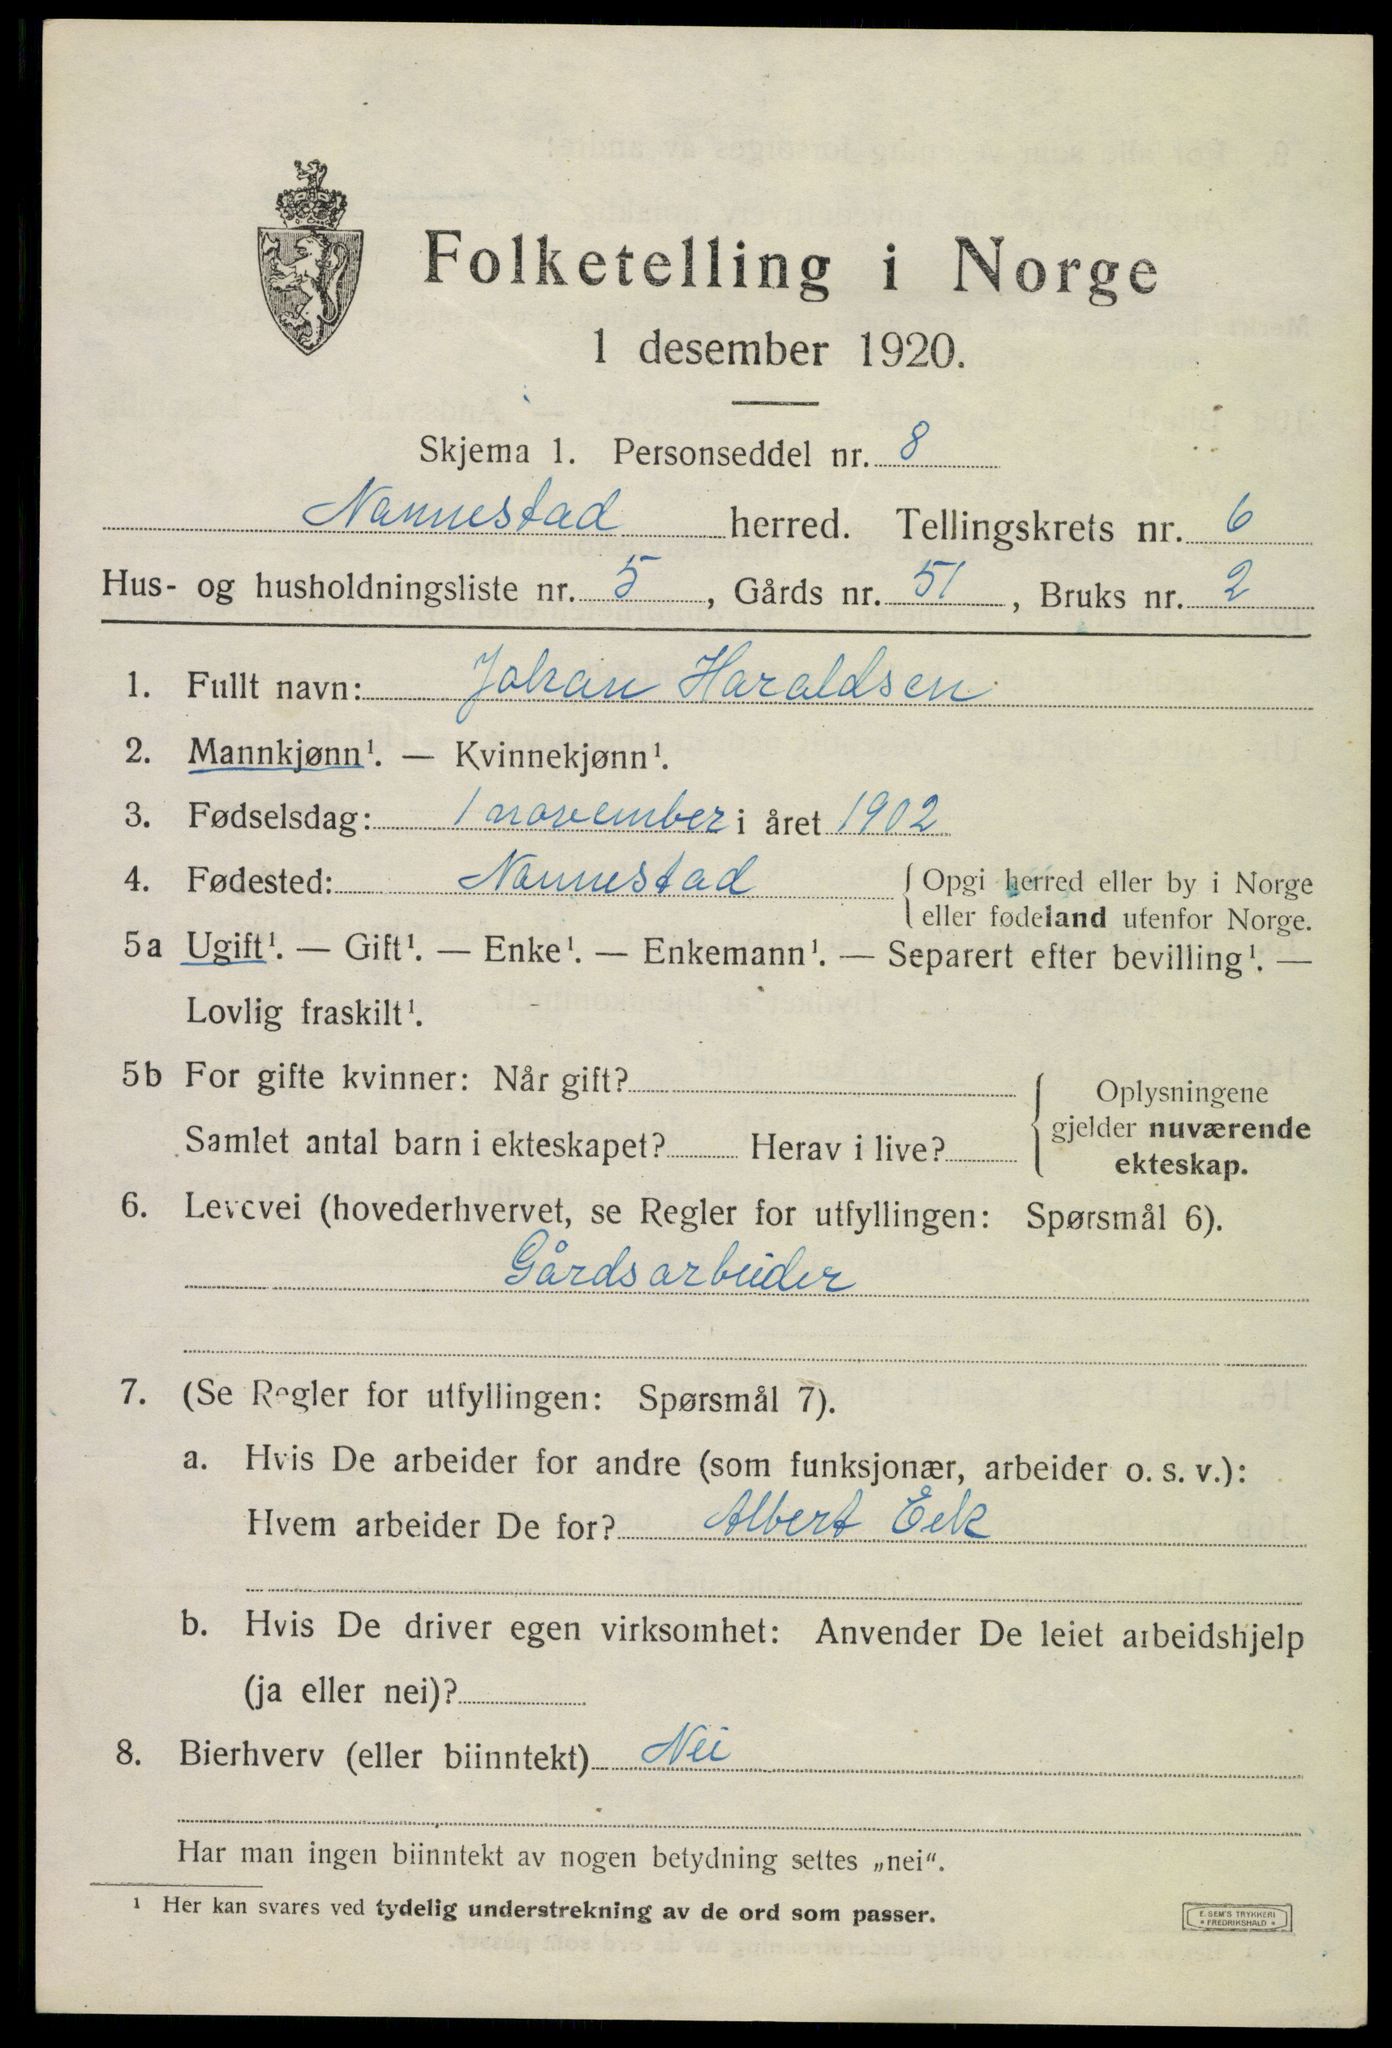 Folketelling i Norge
1 desember 1920.
Skjema 1. Personseddel nr. 8
Nannestad herred. Tellingskrets nr. 6
Hus- og husholdningsliste nr. 5, Gårds nr. 51, Bruks nr. 2
1. Fullt navn: Johan Haraldsen
2. Mannkjønn¹. — Kvinnekjønn¹.
3. Fødselsdag: 1 november i året 1902
4. Fødested: Nannestad { Opgi herred eller by i Norge
eller fødeland utenfor Norge.
5a Ugift¹. — Gift¹. — Enke¹. — Enkemann¹. — Separert efter bevilling¹. —
Lovlig fraskilt¹.
5b For gifte kvinner: Når gift?
Samlet antal barn i ekteskapet? Herav i live?
Oplysningene
gjelder nuværende
ekteskap.
6. Levevei (hovederhvervet, se Regler for utfyllingen: Spørsmål 6).
Gårdsarbeider
7. (Se Regler for utfyllingen: Spørsmål 7).
a. Hvis De arbeider for andre (som funksjonær, arbeider o. s. v.):
Hvem arbeider De for? Albert Eek
b. Hvis De driver egen virksomhet: Anvender De leiet arbeidshjelp
(ja eller nei)?
8. Bierhverv (eller biinntekt) Nei
Har man ingen biinntekt av nogen betydning settes „nei“.
¹ Her kan svares ved tydelig understrekning av de ord som passer.
E. SEM'S TRYKKERI
* FREDRIKSHALD *